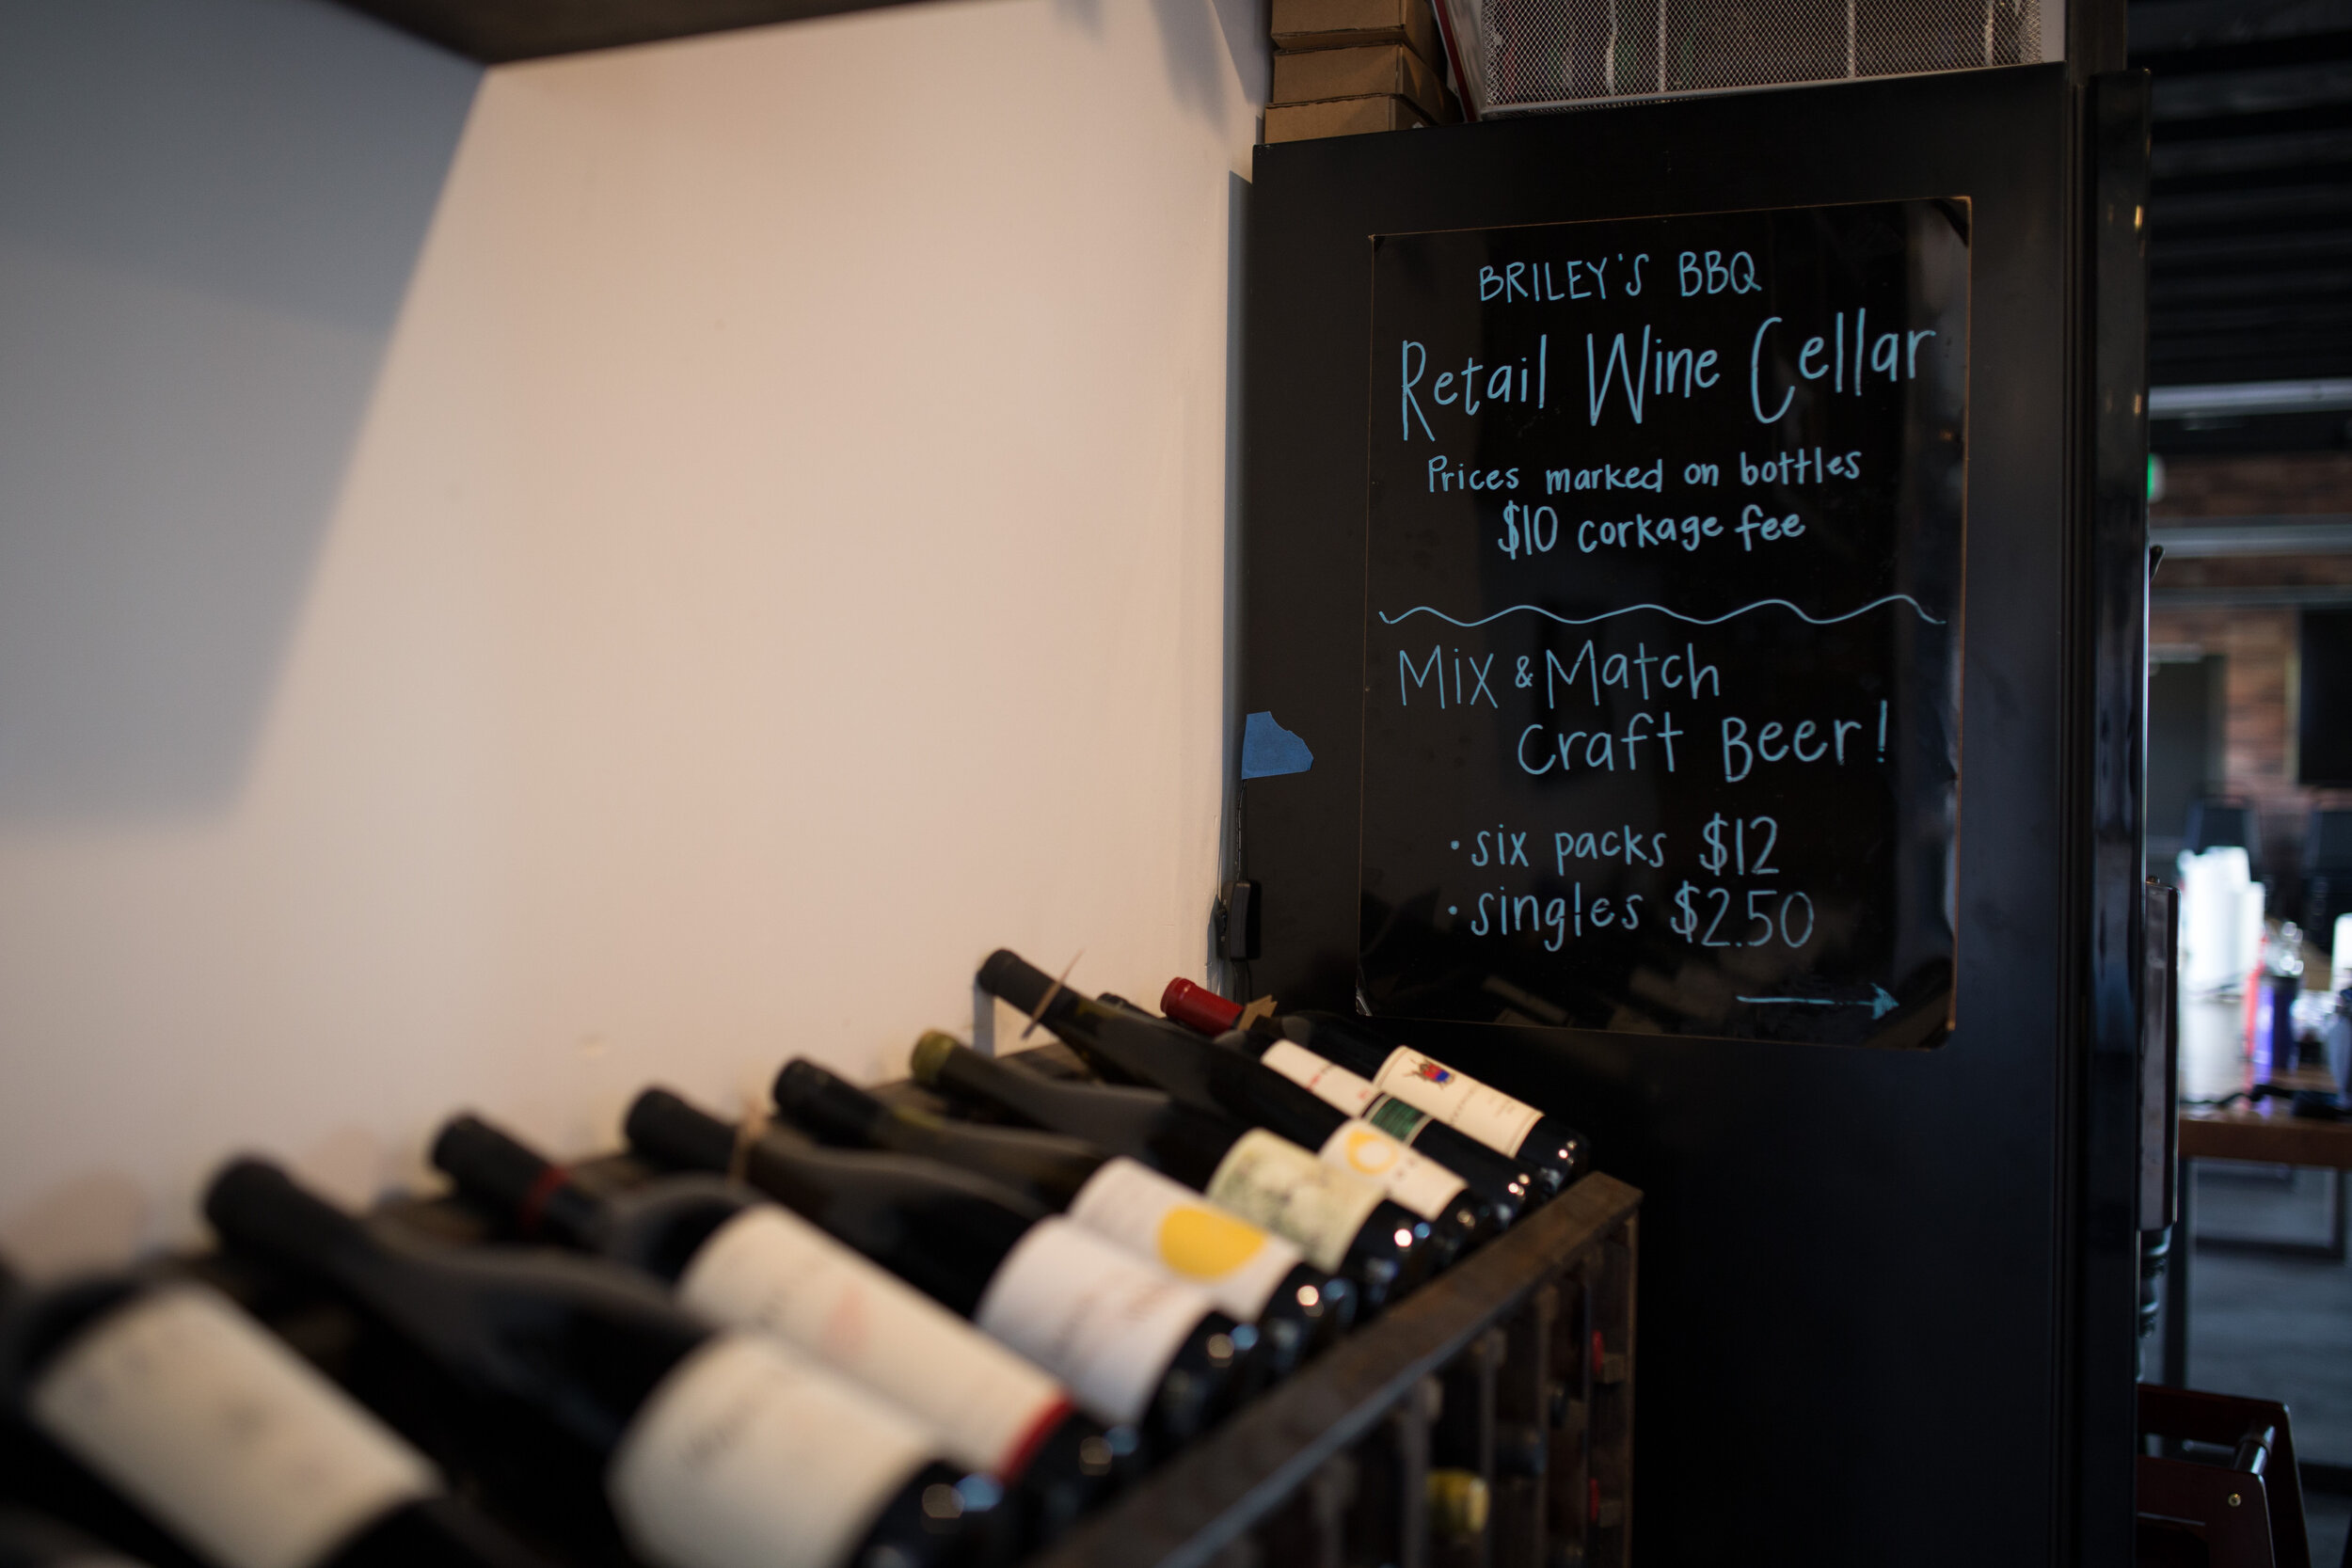 BRILEY'S BBQ
Retail Wine Cellar
Prices marked on bottles
$10 corkage fee
Mix & Match
Craft Beer!
• six packs $12
• singles $2.50